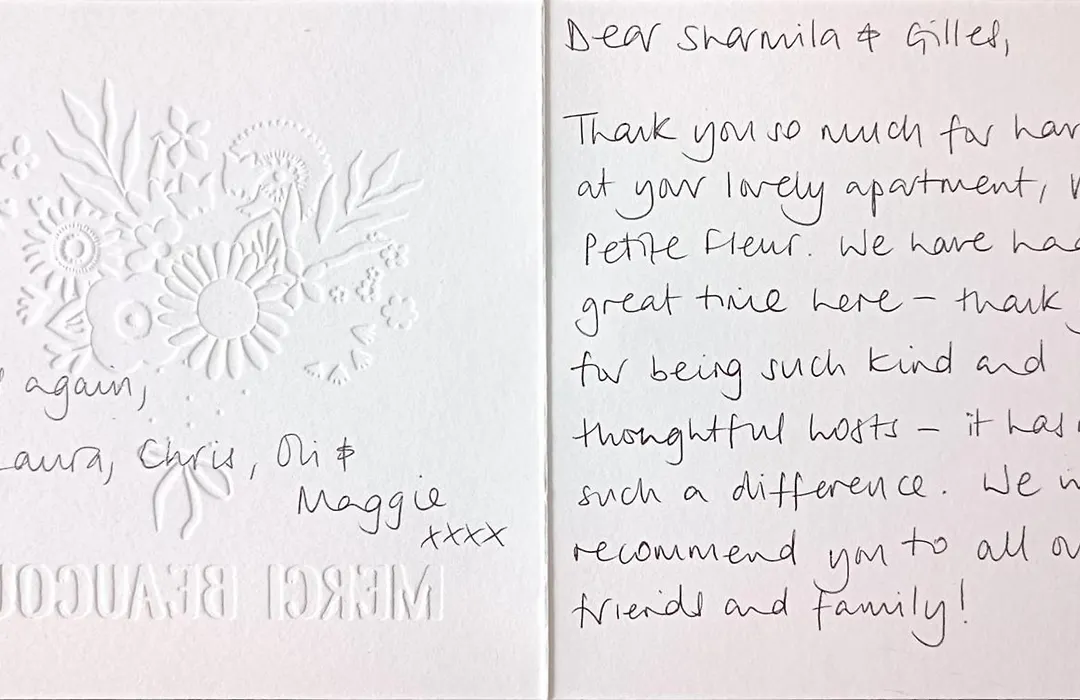 again,
Laura, Chris, Oli &
Maggie
xxxx
MERCI BEAUCOU
Dear Sharmila & Gilles,
Thank you so much for
at your lovely apartment,
Petite Fleur. We have
great time here – thank
for being such kind and
thoughtful hosts – it has
such a difference. We
recommend you to all
friends and family!